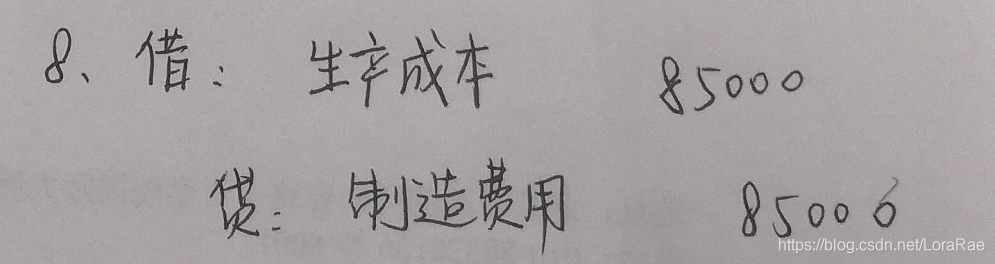 8、借： 生产成本 85000
贷： 制造费用 85000
https://blog.csdn.net/LoraRae